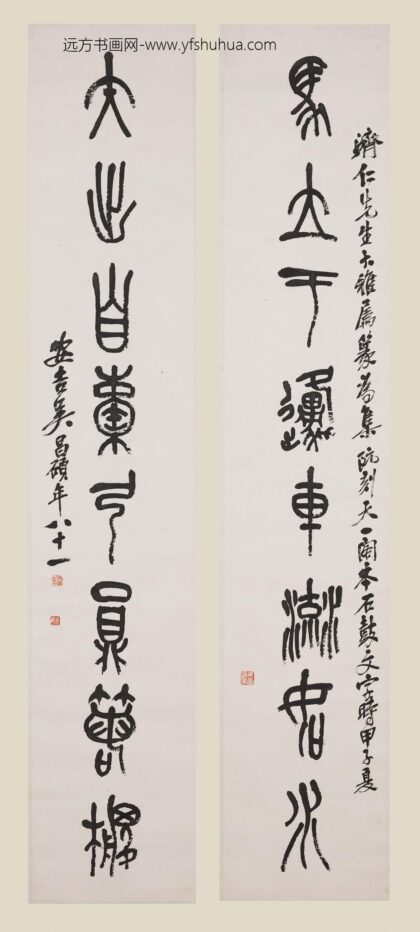 远方书画网-www.yfshuhua.com
濟仁先生大雅屬篆為集阮刻天一閣本石鼓文字時甲子夏
馬立于邍車流如水
出橐弓
安吉吳昌碩年八十一